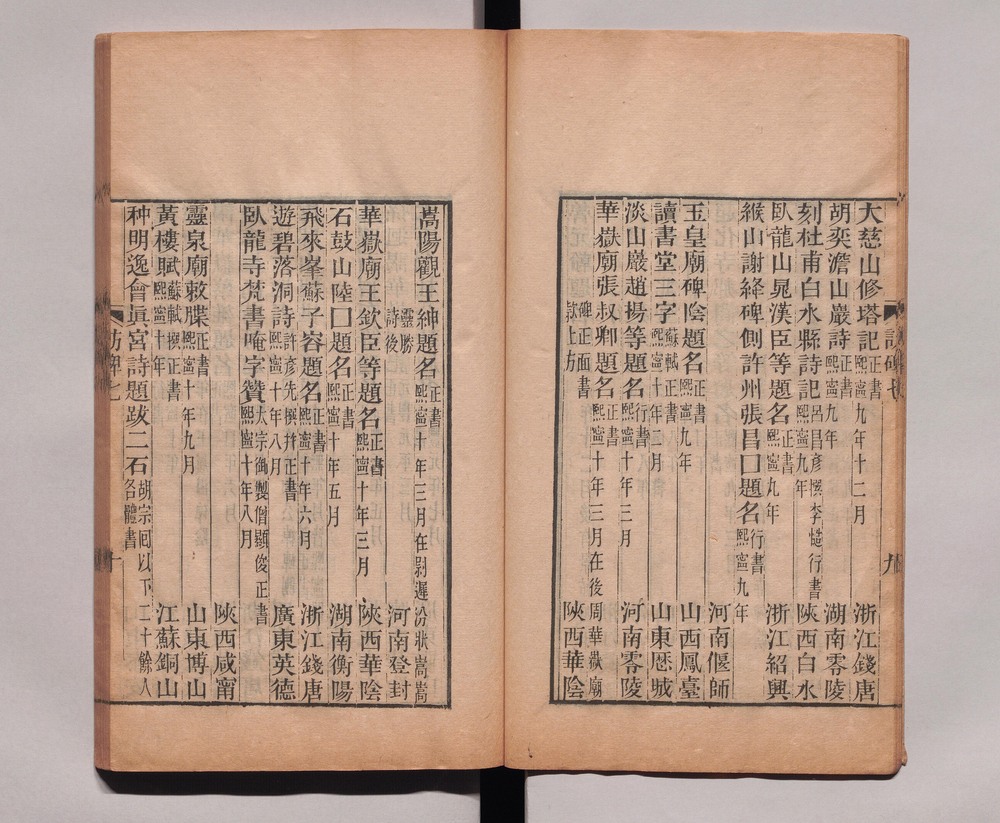 大慈山修塔記正書熙寧九年十二月 浙江錢唐
胡奕澹山巖詩正書熙寧九年 湖南零陵
刻杜甫白水縣詩記呂昌彥撰李慥行書熙寧九年 陝西白水
臥龍山晁漢臣等題名正書熙寧九年 浙江紹興
緱山謝絳碑側許州張昌囗題名行書熙寧九年 河南偃師
玉皇廟碑陰題名正書熙寧九年 山西鳳臺
讀書堂三字蘇軾正書熙寧十年二月 山東歷城
淡山巖趙揚等題名行書熙寧十年三月 河南零陵
華嶽廟張叔卿題名正書熙寧十年三月在後周華嶽廟
碑正面書款上方 陝西華陰
訪碑七 九
嵩陽觀王紳題名正書熙寧十年三月在尉遲汾狀嵩嵩
靈勝詩後 河南登封
華嶽廟王欽臣等題名正書熙寧十年三月 陝西華陰
石鼓山陸囗題名正書熙寧十年五月 湖南衡陽
飛來峯蘇子容題名正書熙寧十年六月 浙江錢唐
遊碧落洞詩許彥先撰幷正書熙寧十年八月 廣東英德
臥龍寺梵書唵字贊太宗御製僧顯俊正書熙寧十年八月
陝西咸甯
靈泉廟敕牒正書熙寧十年九月 山東博山
黃樓賦蘇軾撰正書熙寧十年 江蘇銅山
种明逸會眞宮詩題跋二石胡宗囘以下二十餘人各體書
訪碑七 十